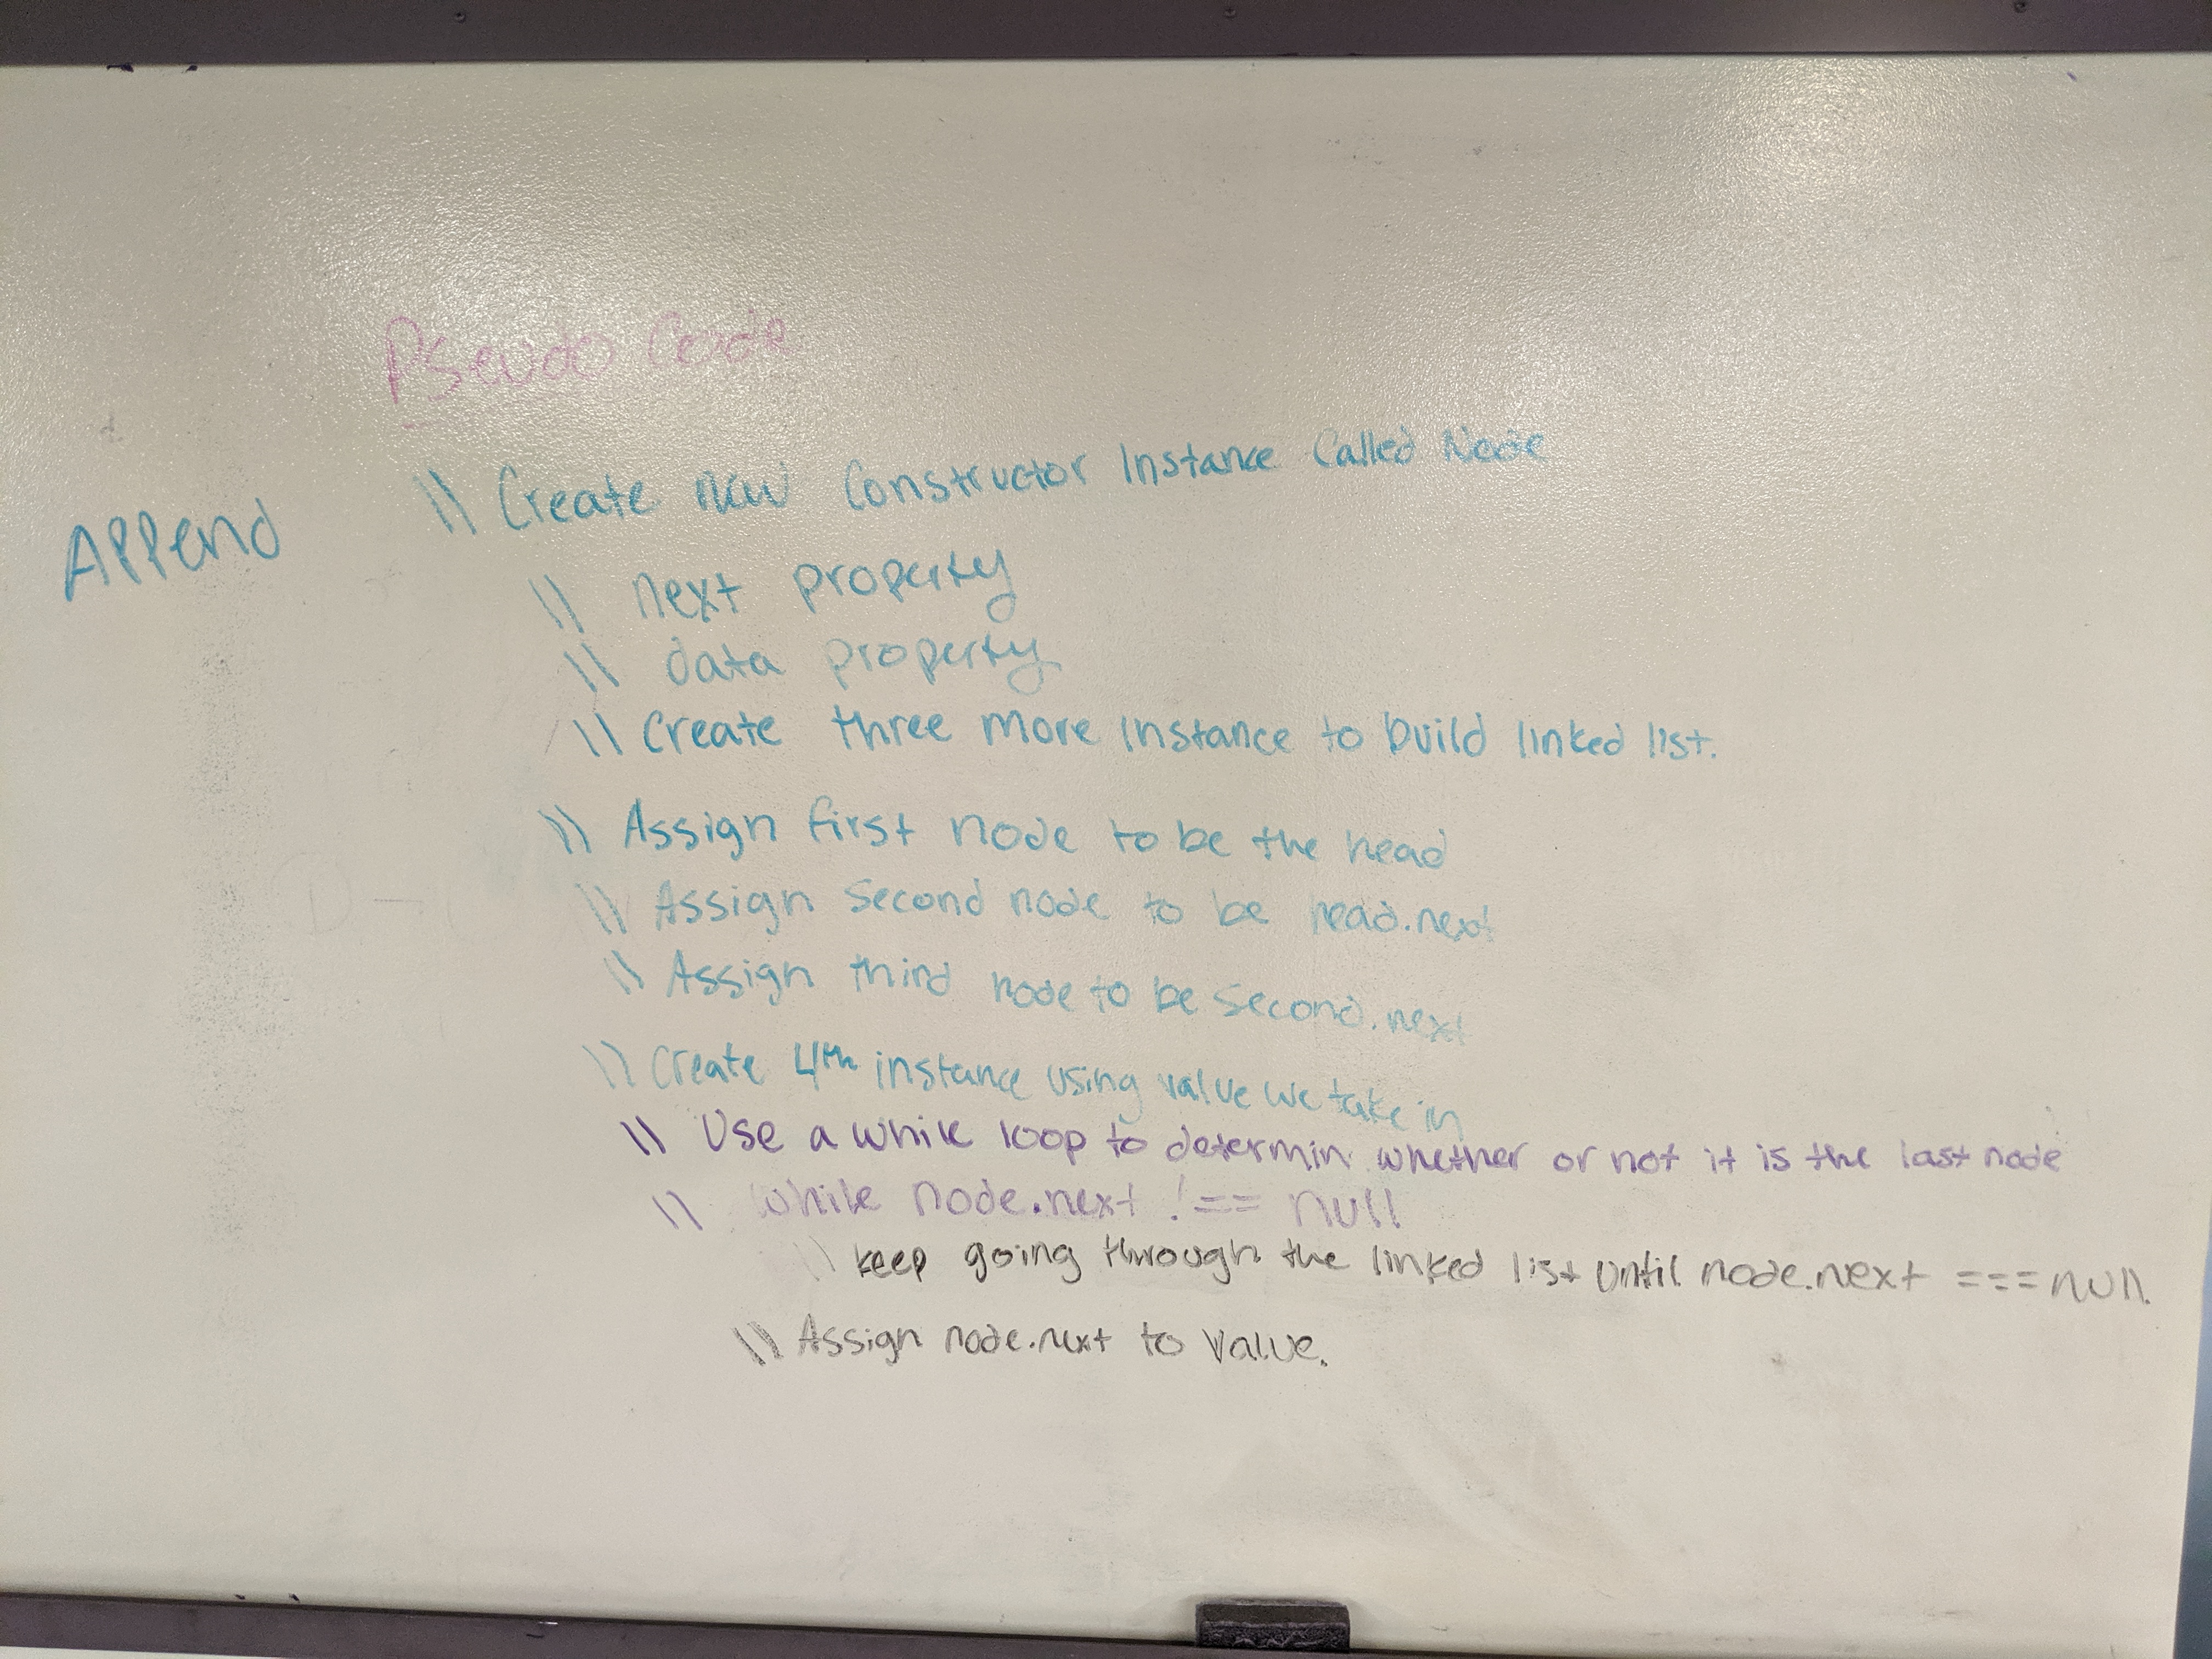 Pseudo Code
Append
\\ Create new Constructor Instance Called Node
\\ next property
\\ data property
\\ Create three more instance to build linked list.
\\ Assign first node to be the head
\\ Assign Second node to be head.next
\\ Assign third node to be second.next
\\ Create 4th instance using value we take in
\\ Use a while loop to determin whether or not it is the last node
\\ while node.next !== null
\\ keep going through the linked list until node.next === null.
\\ Assign node.next to value.